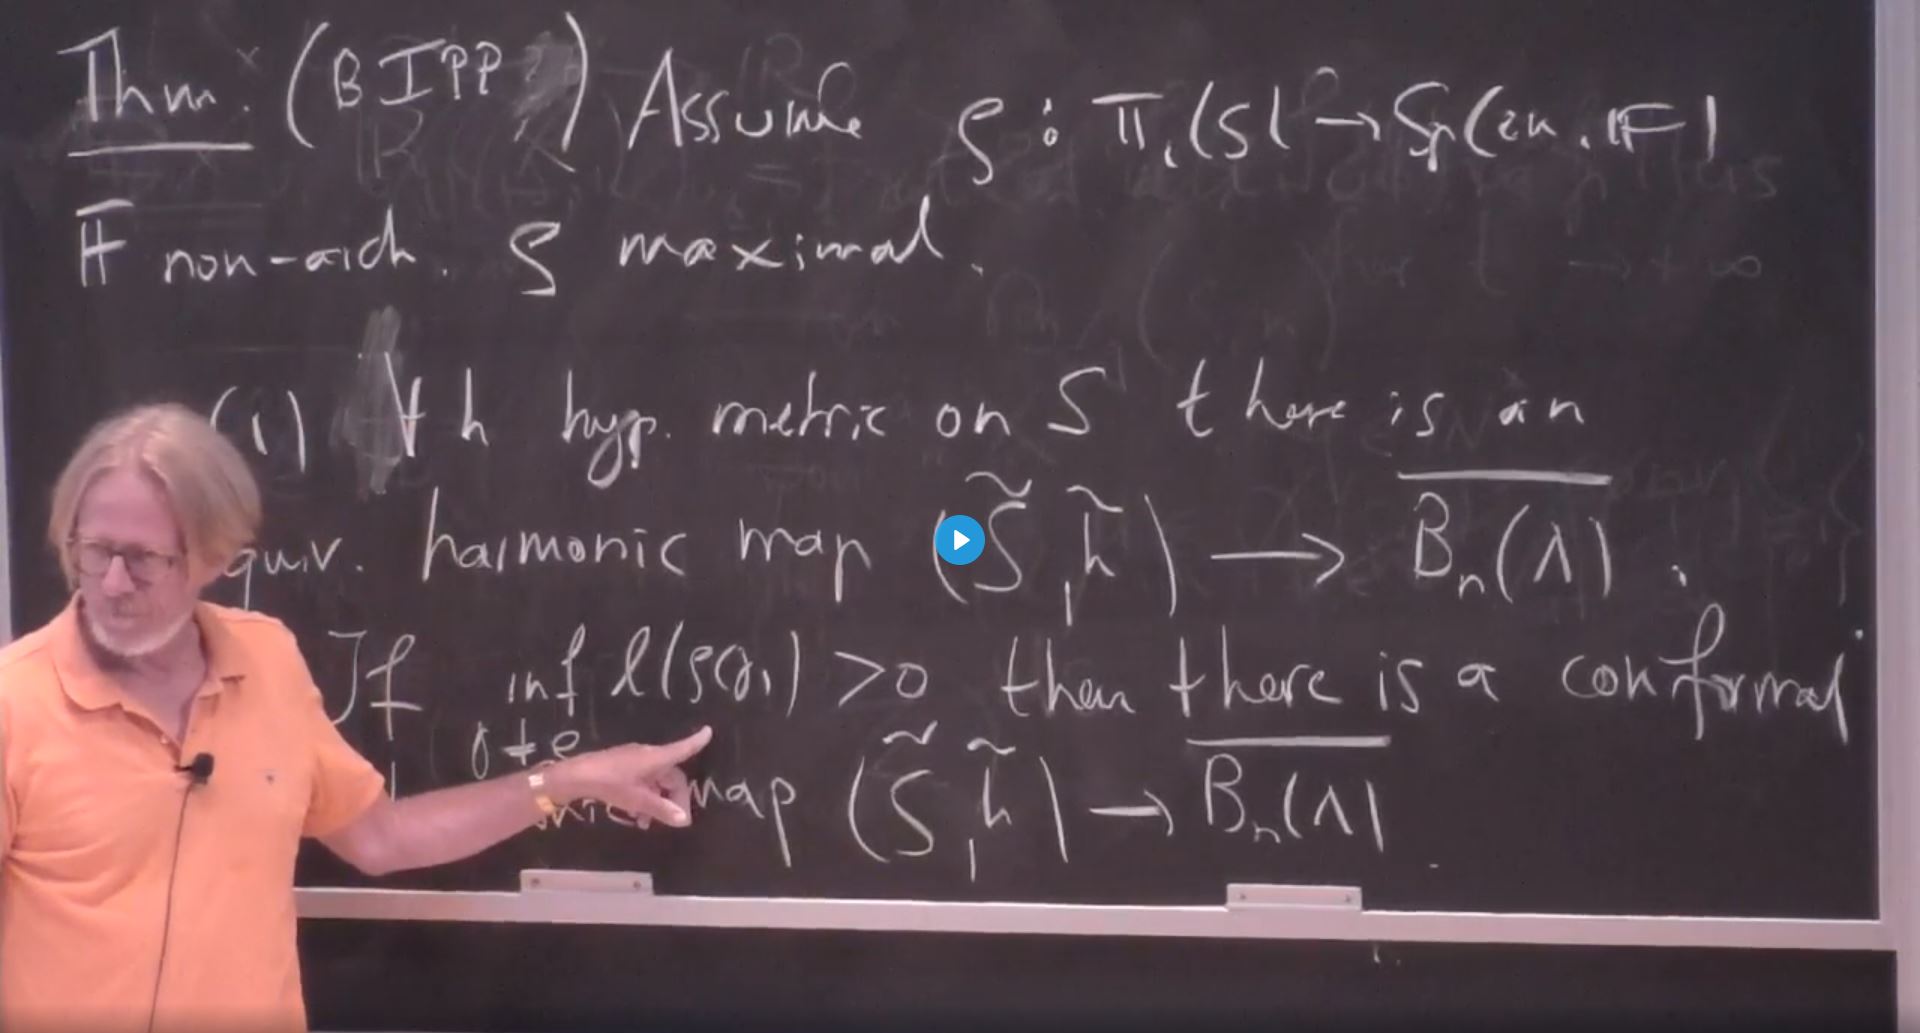 Thm. (BIPP) Assume ρ : π₁(S) → Sp(2n, 𝔽)
𝔽 non-arch. ρ maximal.
(1) ∀ h hyp. metric on S there is an
equiv. harmonic map (S̃, h̃) → \overline{B_n(Λ)}.
If inf l(ρ(γ)) > 0 then there is a conformal
γ≠e
map (S̃, h̃) → \overline{B_n(Λ)}.